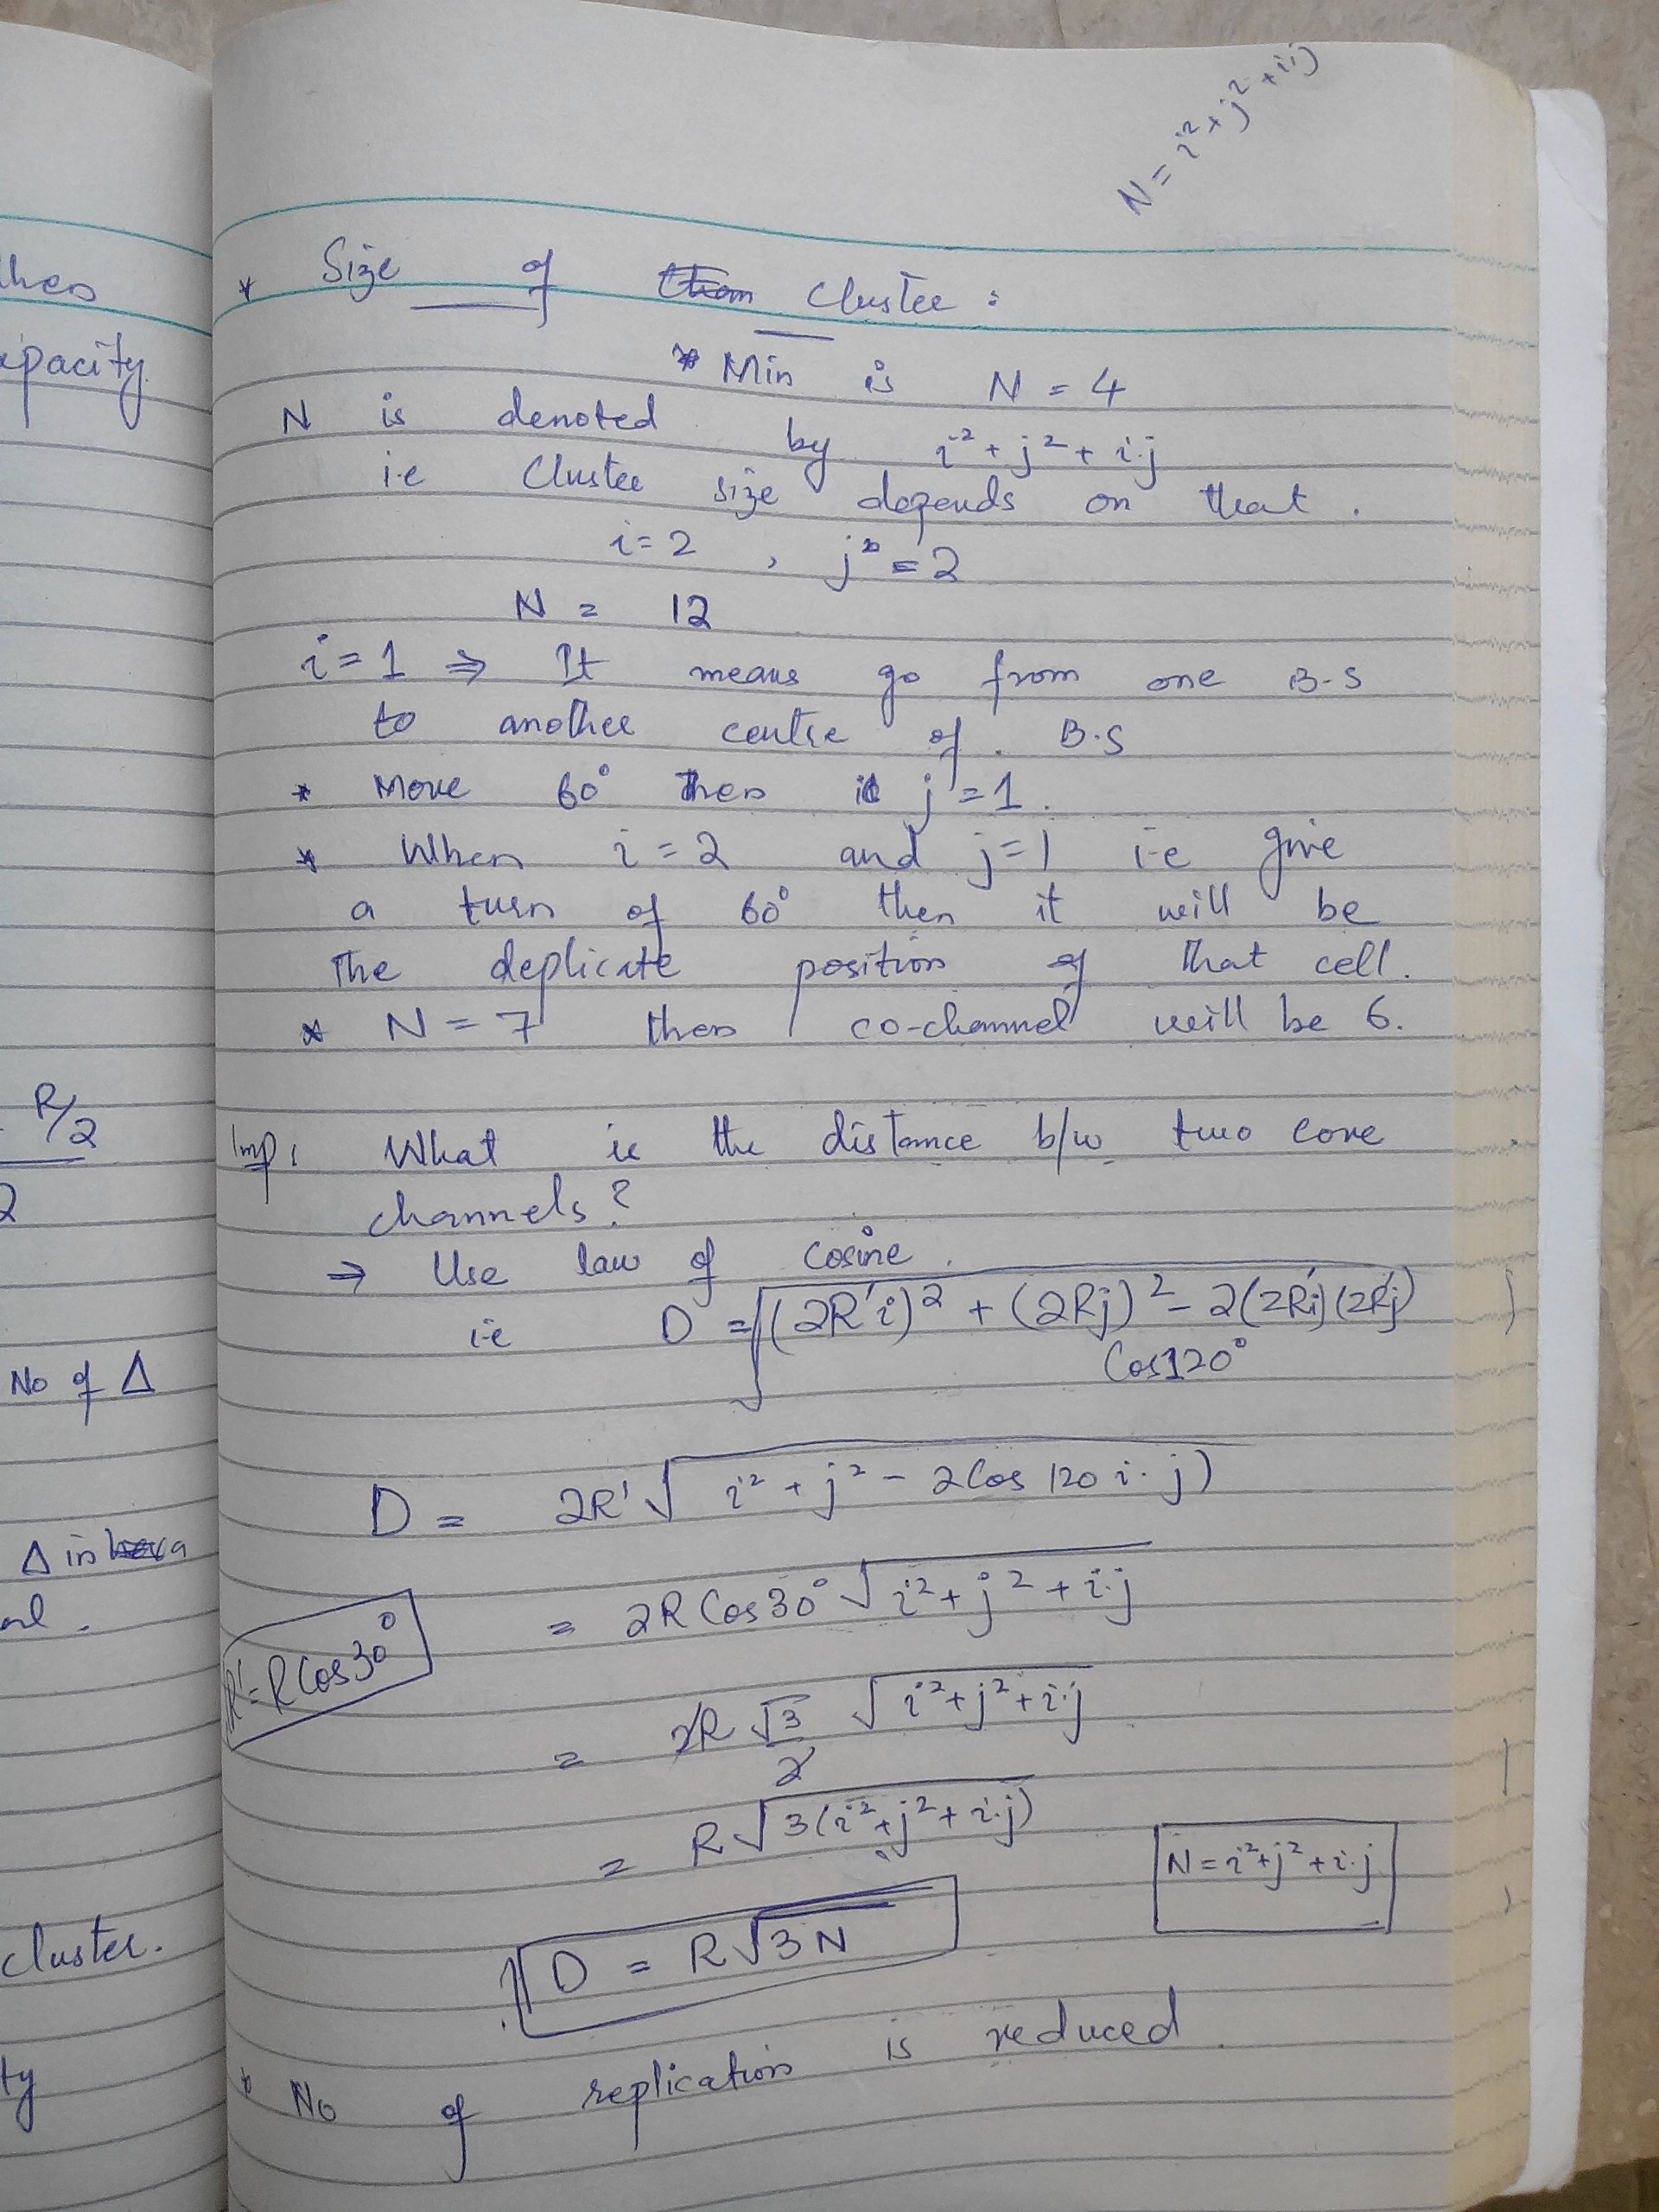 N = i² + j² + i.j
* Size of Cluster :
* Min is N = 4
N is denoted by i² + j² + i.j
i.e Cluster size depends on that .
i = 2 , j = 2
N = 12
i = 1 ⇒ It means go from one B.S
to another centre of . B.S
* Move 60° then j = 1 .
* When i = 2 and j = 1 i.e give
a turn of 60° then it will be
the deplicate position of that cell.
* N = 7 then co-channel will be 6.
Imp: What is the distance b/w two core
channels ?
⇒ Use law of cosine .
i.e D = √(2R'i)² + (2Rj)² - 2(2R'i)(2R'j)
Cos120°
D = 2R' √i² + j² - 2Cos 120 i.j)
= 2R Cos30° √i² + j² + i.j
R' = R Cos30°
= 2R √3/2 √i² + j² + i.j
= R √3(i² + j² + i.j)
N = i² + j² + i.j
D = R√3N
* No of replication is reduced .
hen
apacity
R/2
2
No of Δ
Δ in a
cluster.
ty